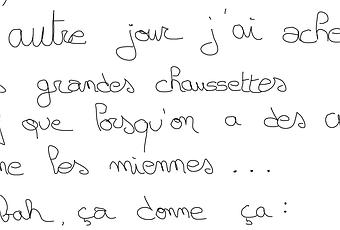 autre jour j'ai ache
grandes chaussettes
que lorsqu'on a des
les miennes ...
bah, ça donne ça :